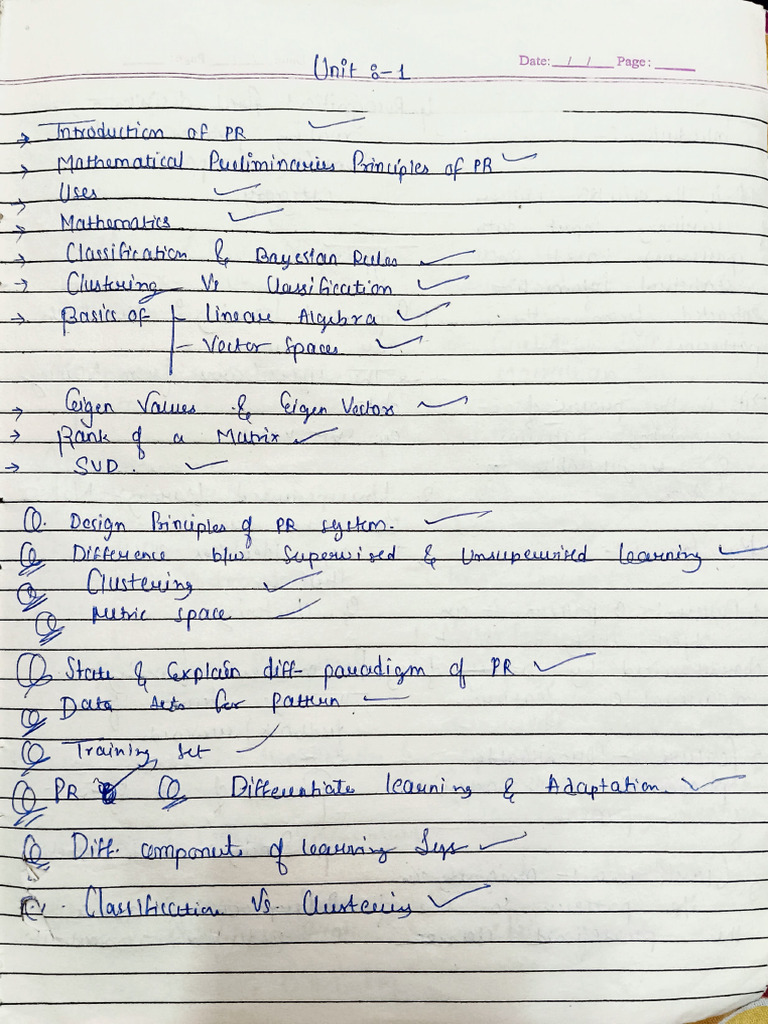 Date: __/__/__ Page: ____
Unit :- 1
→ Introduction of PR ✓
→ Mathematical Preliminaries Principles of PR ✓
→ Uses ✓
→ Mathematics ✓
→ Classification & Bayesian Rules ✓
→ Clustering Vs Classification ✓
→ Basics of - Linear Algebra ✓
- Vector Spaces ✓
→ Eigen Values & Eigen Vector ✓
→ Rank of a Matrix ✓
→ SVD. ✓
Q. Design Principles of PR system. ✓
Q Difference b/w Supervised & Unsupervised learning ✓
Q Clustering ✓
Q Metric space ✓
Q State & Explain diff. paradigm of PR ✓
Q Data sets for pattern ✓
Q Training set ✓
Q PR Q Differentiate learning & Adaptation. ✓
Q Diff. components of learning Sys ✓
Q. Classification Vs. Clustering ✓